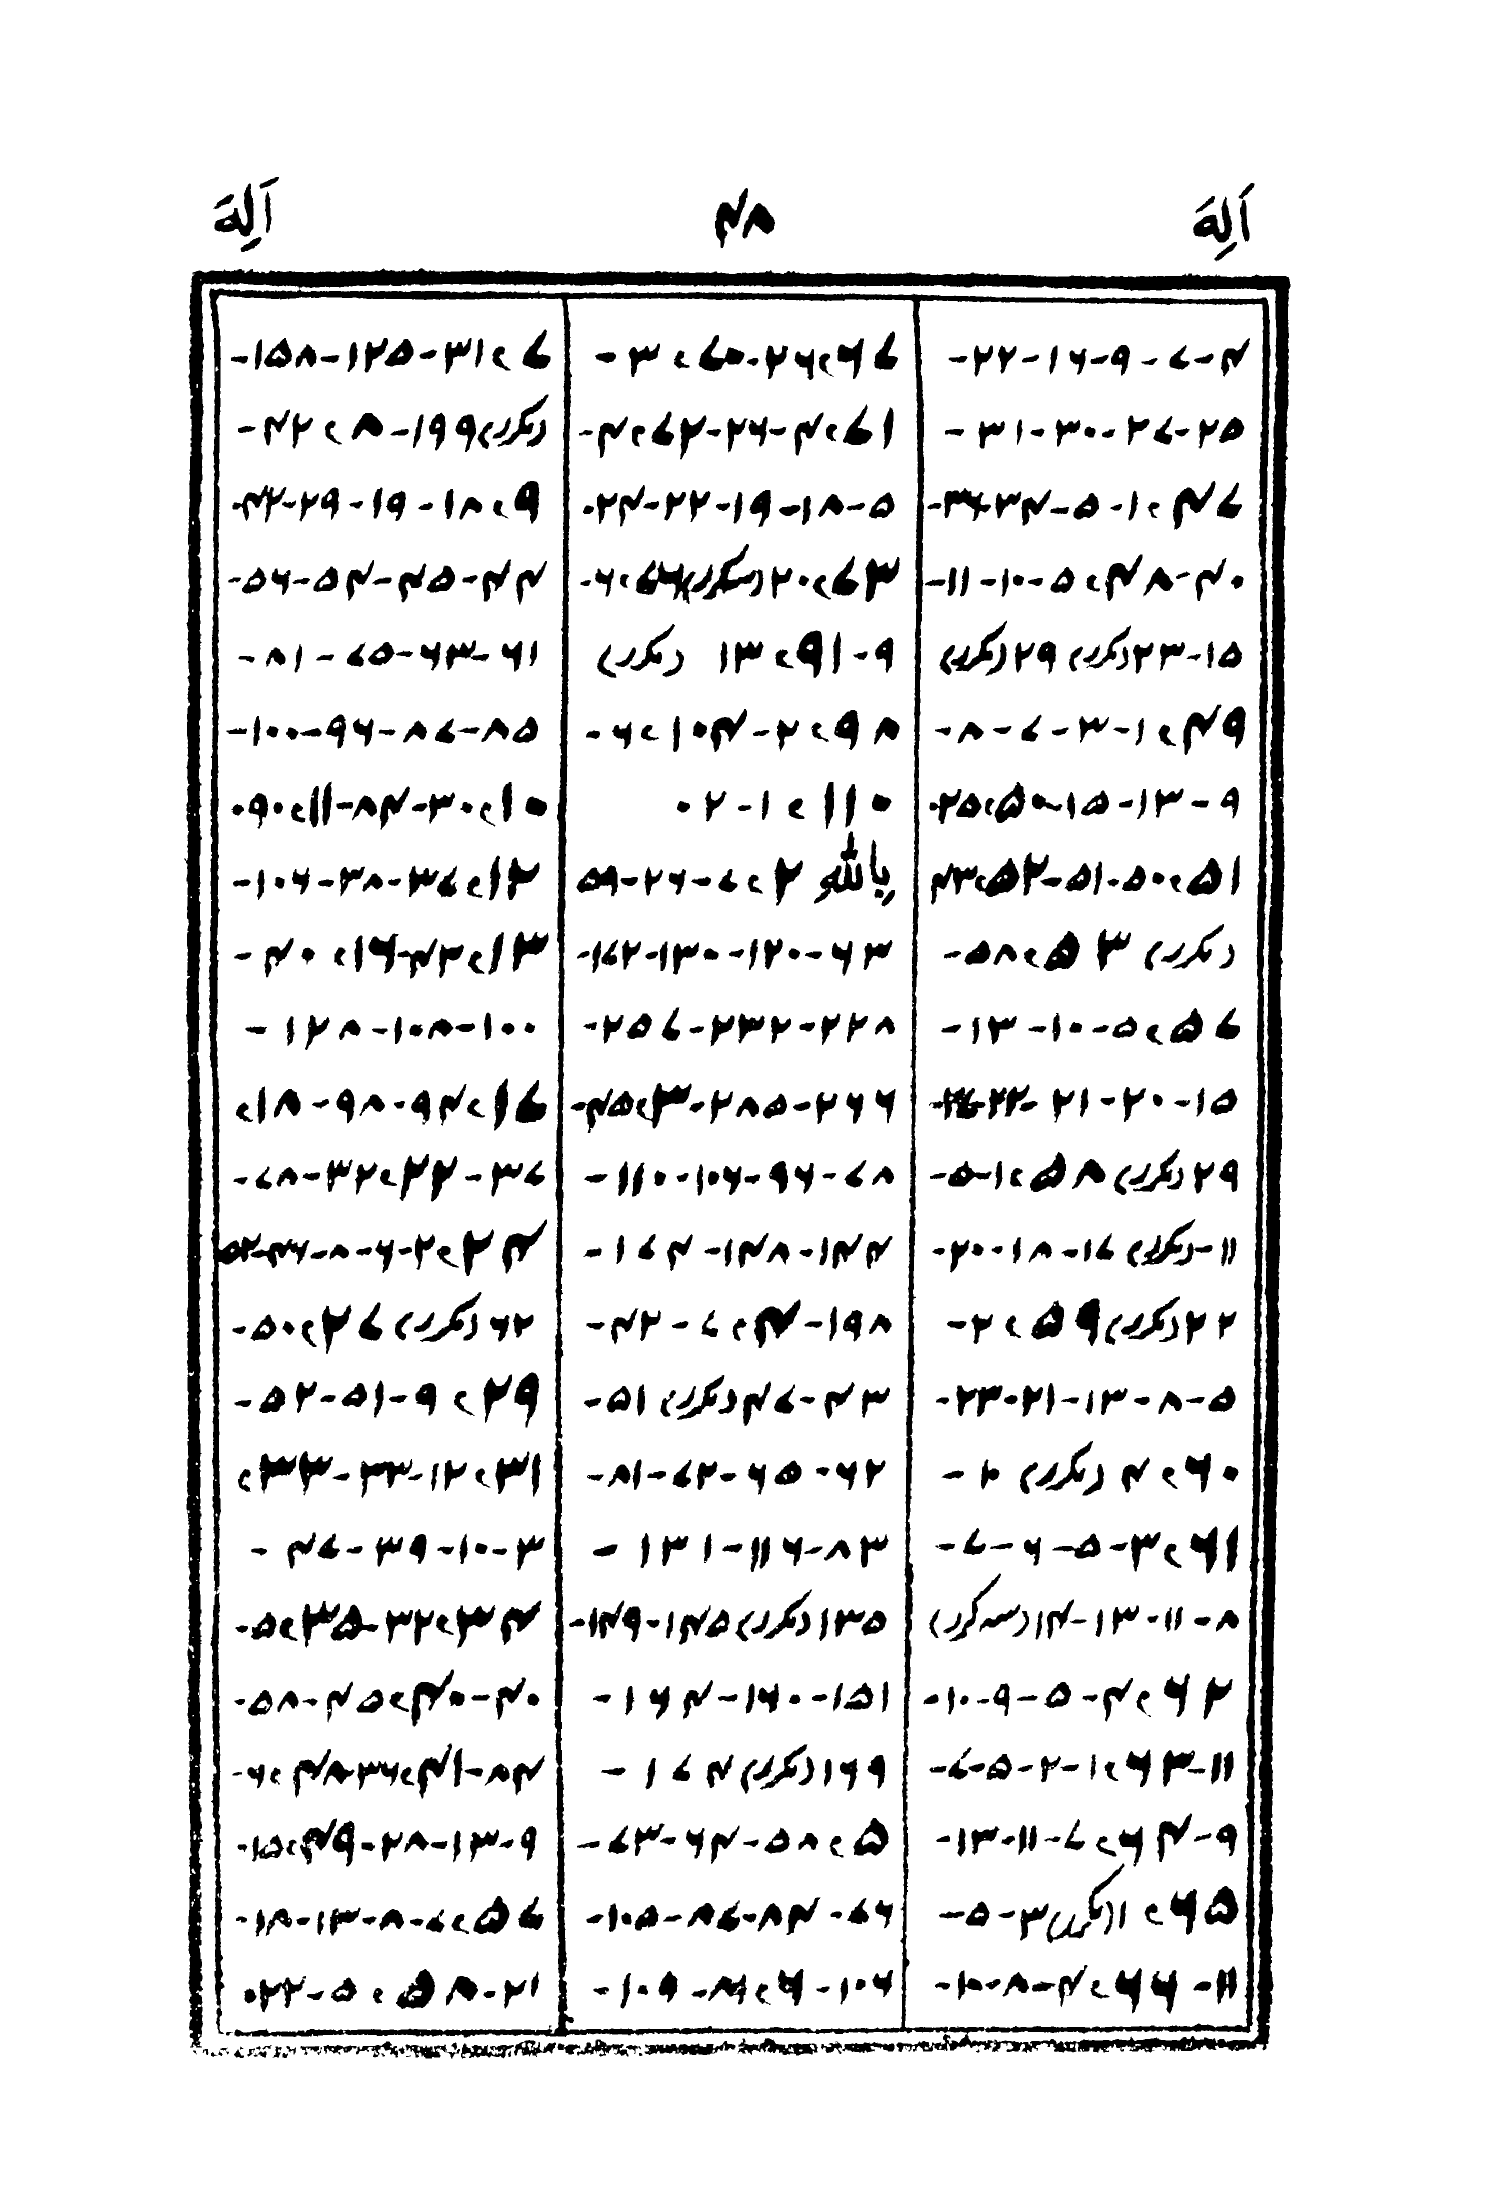 اَلِهَ ۴۸ اَلِهَ
۴-۷-۹-۱۶-۲۲-
۲۵-۲۷-۳۰-۳۱-
۴۷،۱-۵-۳۴-۳۶-
۴۰-۴۸،۵-۱۰-۱۱-
۱۵-۲۳(مکرر)۲۹(مکرر)
۴۹،۱-۳-۷-۸-
۹-۱۳-۱۵-۵۰،۲۵۰
۵۱،۵۰-۵۱-۵۲،۴۳
(مکرر) ۵۳،۵۸-
۵۷،۵-۱۰-۱۳-
۱۵-۲۰-۲۱-۲۲-۲۴-
۲۹(مکرر)۵۸،۱-۵-
۱۱-(مکرر)۱۷-۱۸-۲۰-
۲۲(مکرر)۵۹،۲-
۵-۸-۱۳-۲۱-۲۳-
۶۰،۴(مکرر) ۱۰-
۶۱،۳-۵-۶-۷-
۸-۱۱-۱۳-۱۴(سه کرر)
۶۲،۴-۵-۹-۱۰-
۱۱-۶۳،۱-۲-۵-۷-
۹-۶۴،۷-۱۱-۱۳-
۶۵،۱(مکرر)۳-۵-
۱۱-۶۶،۴-۸-۱۰-
۶۷،۲۶-۷۰،۳-
۷۱،۴-۲۶-۷۲،۴-
۵-۱۸-۱۹-۲۲-۲۴۰
۷۳،۲۰(سه کرر)۷۶،۶-
۹-۹۱،۱۳(مکرر)
۹۸،۲-۱۰۴،۶-
۱۱۰،۱-۲۰
بِاللّٰهِ ۲،۷-۲۶-۵۹
۶۳-۱۲۰-۱۳۰-۱۷۲-
۲۲۸-۲۳۲-۲۵۷-
۲۶۶-۲۸۵-۳،۴۵-
۷۸-۹۶-۱۰۶-۱۱۰-
۱۴۴-۱۴۸-۱۷۴-
۱۹۸-۴،۷-۴۲-
۴۳-۴۷(مکرر)۵۱-
۶۲-۶۵-۷۲-۸۱-
۸۳-۱۱۶-۱۳۱-
۱۳۵(مکرر)۱۴۵-۱۴۹-
۱۵۱-۱۶۰-۱۶۴-
۱۶۹(مکرر)۱۷۴-
۵،۵۸-۶۴-۷۳-
۷۶-۸۴-۸۷-۱۰۵-
۱۰۶-۶،۱۹-۱۰۹-
۷،۳۱-۱۲۵-۱۵۸-
(مکرر)۱۹۹-۸،۴۲-
۹،۱۸-۱۹-۲۹-۴۲۰
۴۴-۴۵-۵۴-۵۶-
۶۱-۶۳-۷۵-۸۱-
۸۵-۸۷-۹۶-۱۰۰-
۱۰،۳۰-۸۴-۱۱،۹۰۰
۱۲،۳۷-۳۸-۱۰۶-
۱۳،۴۳-۱۶،۴۰-
۱۰۰-۱۰۸-۱۲۸-
۱۷،۹۴-۹۸-۱۸،
۳۷-۲۲،۳۲-۷۸-
۲۴،۲-۶-۸-۴۶-۵۲
۶۲(مکرر)۲۷،۵۰-
۲۹،۹-۵۱-۵۲-
۳۱،۱۲-۳۳-۳۳،
۳-۱۰-۳۹-۴۷-
۳۴،۳۲-۳۵،۵-
۴۰-۴۰،۴۵-۵۸-
۸۴-۴۱،۳۶-۴۸،۶-
۹-۱۳-۲۸-۴۹،۱۵-
۵۷،۷-۸-۱۳-۱۸-
۲۱-۵۸،۵-۲۲۰